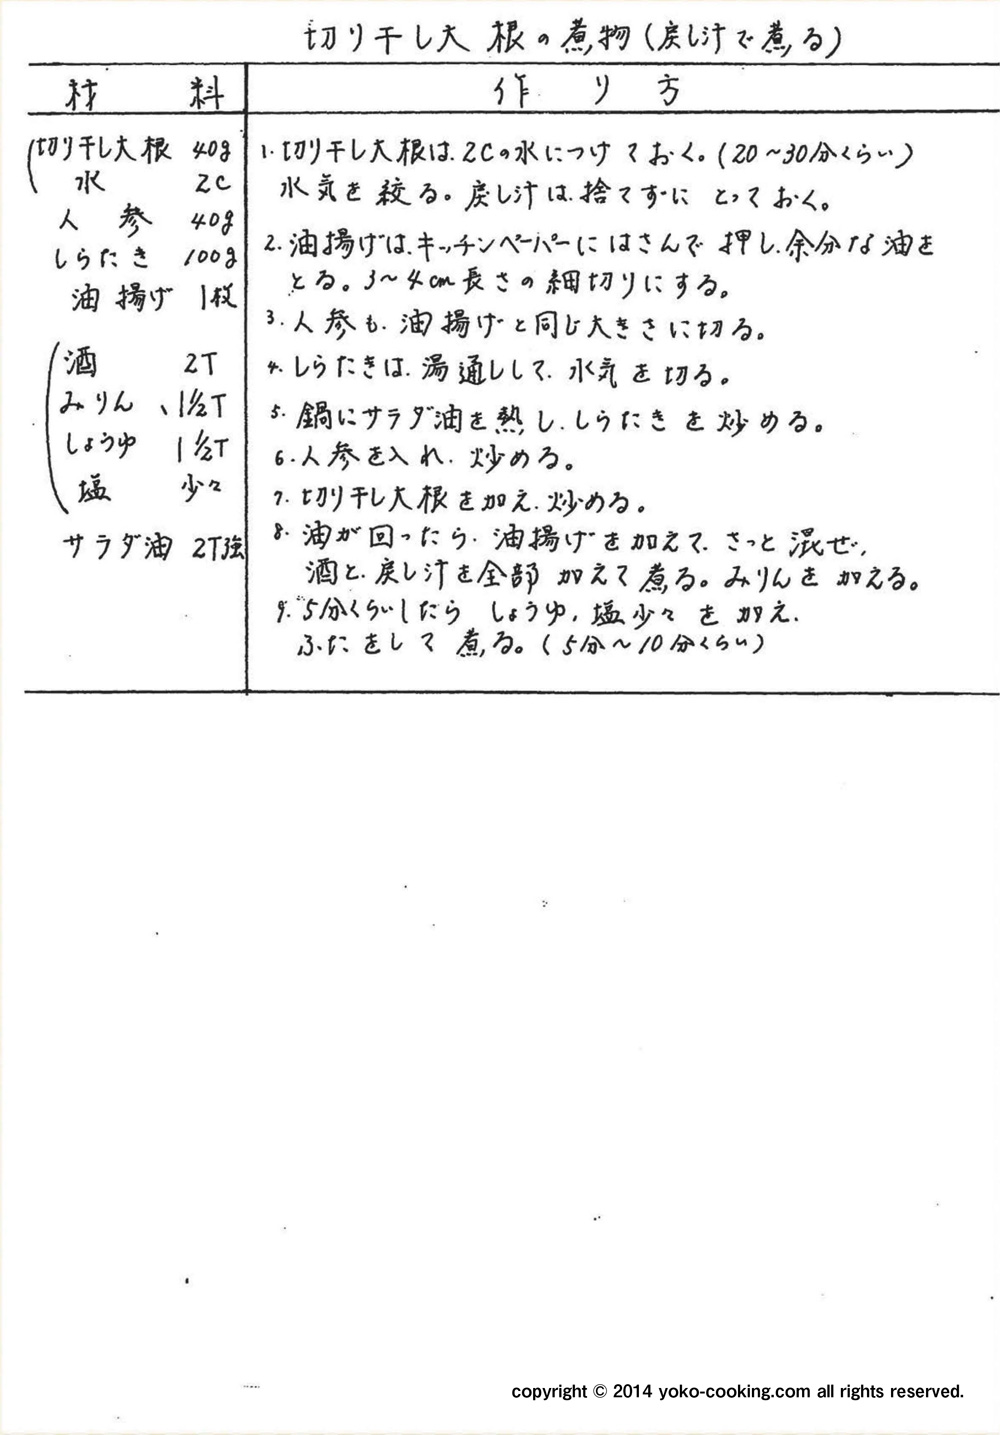 切り干し大根の煮物(戻し汁で煮る)
材料
作り方
切り干し大根 40g
水 2C
人参 40g
しらたき 100g
油揚げ 1枚
酒 2T
みりん 、1½T
しょうゆ 1½T
塩 少々
サラダ油 2T強
1. 切り干し大根は、2Cの水につけておく。(20〜30分くらい)
水気を絞る。戻し汁は、捨てずにとっておく。
2. 油揚げは、キッチンペーパーにはさんで押し、余分な油を
とる。3〜4cm長さの細切りにする。
3. 人参も、油揚げと同じ大きさに切る。
4. しらたきは、湯通しして、水気を切る。
5. 鍋にサラダ油を熱し、しらたきを炒める。
6. 人参を入れ、炒める。
7. 切り干し大根を加え、炒める。
8. 油が回ったら、油揚げを加えて、さっと混ぜ、
酒と、戻し汁を全部加えて煮る。みりんを加える。
9. 5分くらいしたら しょうゆ、塩少々を加え、
ふたをして煮る。(5分〜10分くらい)
copyright © 2014 yoko-cooking.com all rights reserved.